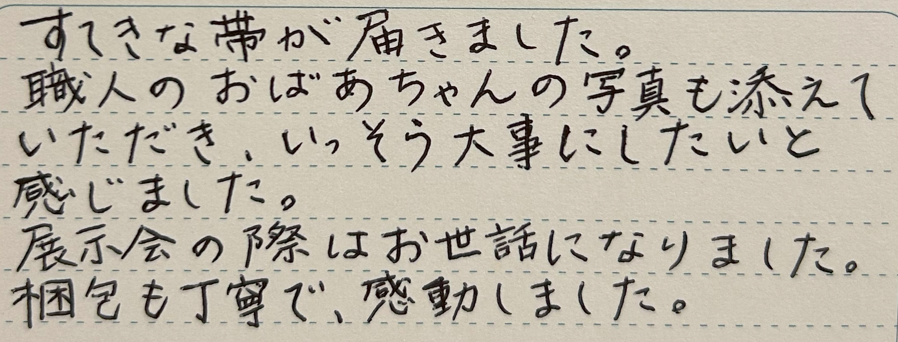 すてきな帯が届きました。
職人のおばあちゃんの写真も添えて
いただき、いっそう大事にしたいと
感じました。
展示会の際はお世話になりました。
梱包も丁寧で、感動しました。